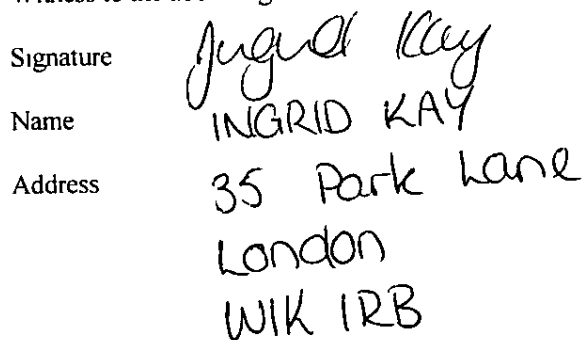 Signature Ingrid Kay
Name INGRID KAY
Address 35 Park Lane
London
W1K 1RB